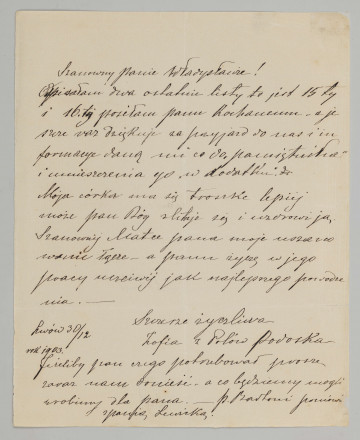 Szanowny Panie Władysławie!
Opisałam dwa ostatnie listy to jest 15 ty
i 16. ty posłałam panu kochanemu a je
szcze raz dziękuję za przyjazd do nas i in
formacye daną mi co do „pamiętnika”
i umieszczenia go w dodatku do
Moja córka ma się troszkę lepiej
może pan Bóg zlituje się i uzdrowi ją,
Szanownej Matce pana moje uszano
wanie łączę a panu życzę w jego
pracy uczciwej jak najlepszego powodze
nia. —
Szczerze życzliwa
Zofia z Fołów Podoska
Lwów 30/12
rok 1903.
Jeśliby pan czego potrzebował proszę
zaraz nam donieść a co będziemy mogli
zrobimy dla pana. — p.